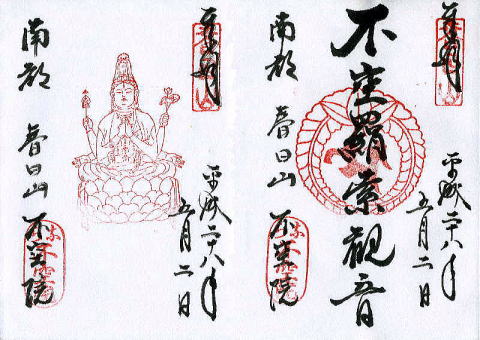 奉拝
不空羂索観音
平成二十八年
五月二日
南都 春日山
不空院
奉拝
平成二十八年
五月二日
南都 春日山
不空院